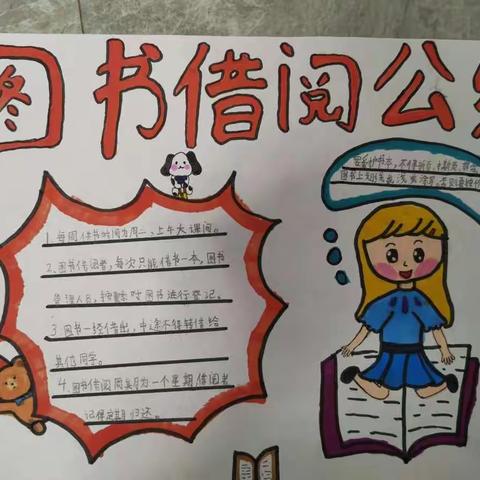 图书借阅公
1.每周借书时间为周二、上午大课间。
2.图书借阅者,每次只能借书一本,图书
管理人员,按顺序对图书进行登记。
3.图书一经借出,中途不得转借给
其他同学。
4.图书借阅周期为一个星期借阅者
记得定期归还。
爱护书本,不得折页、撕页
图书上